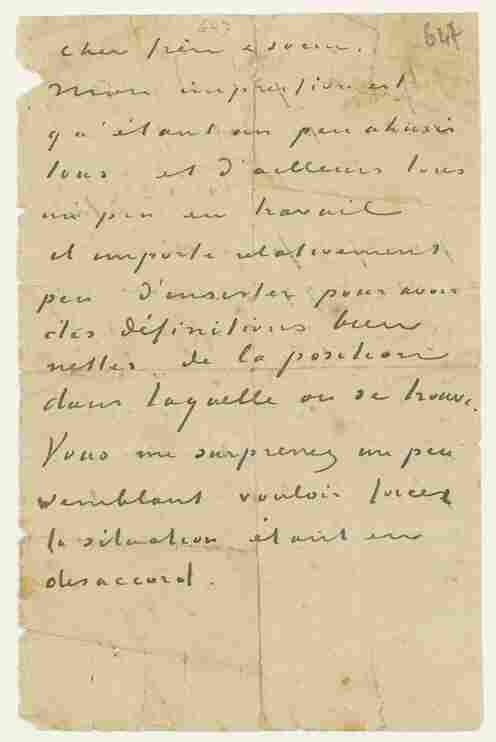 647
647
cher frère & soeur.
Mon impression est
qu'étant un peu ahuris
tous et d'ailleurs tous
un peu en travail
il importe relativement
peu d'insister pour avoir
des définitions bien
nettes de la position
dans laquelle on se trouve.
Vous me surprenez un peu
semblant vouloir forcer
la situation étant en
desaccord.